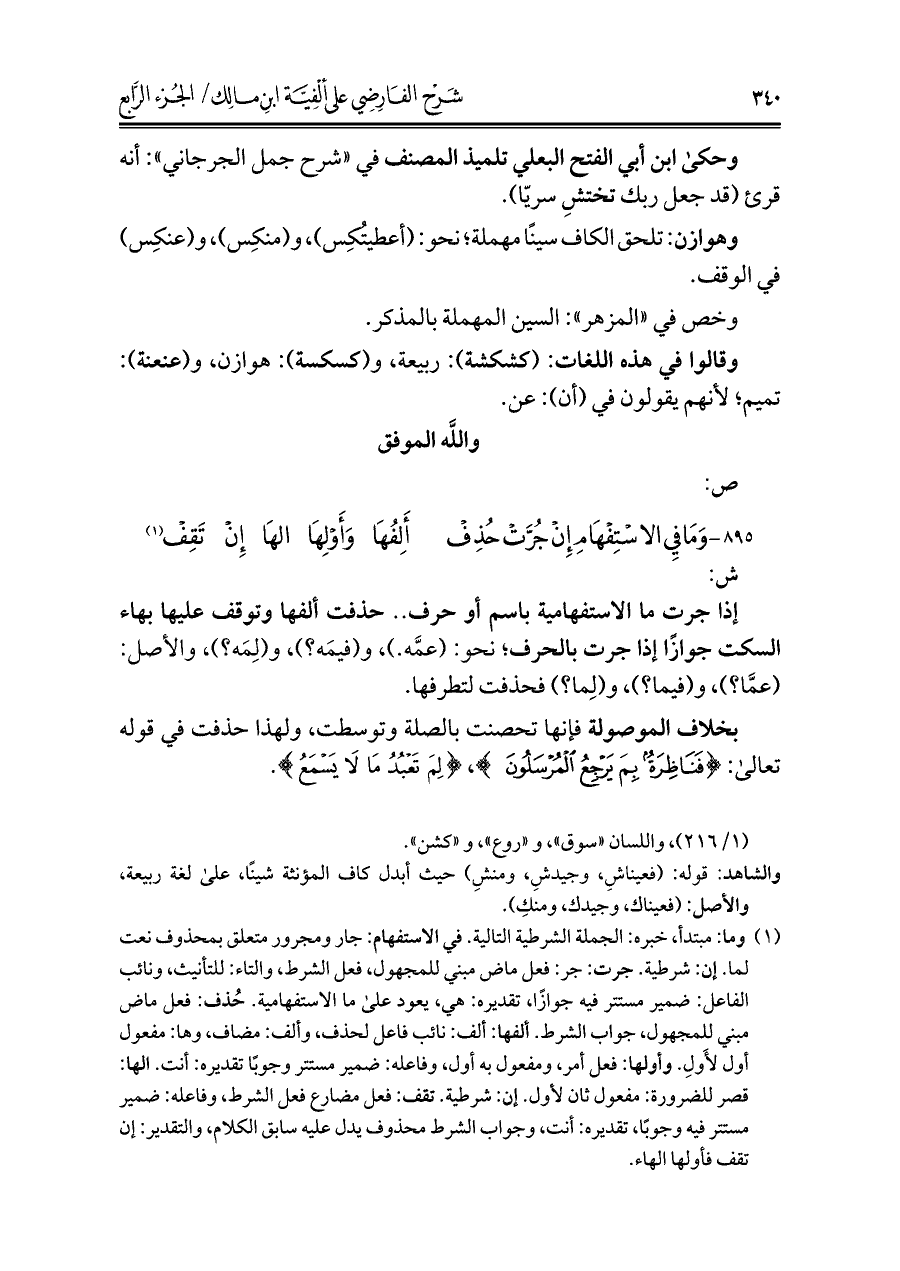 ٣٤٠ شَرْح الفَارِضِي على ألْفِيَّة ابن مَالِك/ الجُزء الرَّابع
وحكىٰ ابن أبي الفتح البعلي تلميذ المصنف في «شرح جمل الجرجاني»: أنه
قرئ (قد جعل ربك تختشِ سريّا).
وهوازن: تلحق الكاف سينًا مهملة؛ نحو: (أعطيتُكِس)، و(منكِس)، و(عنكِس)
في الوقف.
وخص في «المزهر»: السين المهملة بالمذكر.
وقالوا في هذه اللغات: (كشكشة): ربيعة، و(كسكسة): هوازن، و(عنعنة):
تميم؛ لأنهم يقولون في (أن): عن.
واللَّه الموفق
ص:
٨٩٥- وَمَا فِي الاسْتِفْهَامِ إِنْ جُرَّتْ حُذِفْ أَلِفُهَا وَأَوْلِهَا الهَا إِنْ تَقِفْ(١)
ش:
إذا جرت ما الاستفهامية باسم أو حرف.. حذفت ألفها وتوقف عليها بهاء
السكت جوازًا إذا جرت بالحرف؛ نحو: (عمَّه.)، و(فيمَه؟)، و(لِمَه؟)، والأصل:
(عمَّا؟)، و(فيما؟)، و(لِما؟) فحذفت لتطرفها.
بخلاف الموصولة فإنها تحصنت بالصلة وتوسطت، ولهذا حذفت في قوله
تعالىٰ: ﴿فَنَاظِرَةٌۢ بِمَ يَرْجِعُ ٱلْمُرْسَلُونَ﴾، ﴿لِمَ تَعْبُدُ مَا لَا يَسْمَعُ﴾.
(١/ ٢١٦)، واللسان «سوق»، و «روع»، و «كشن».
والشاهد: قوله: (فعيناشِ، وجيدشِ، ومنشِ) حيث أبدل كاف المؤنثة شينًا، علىٰ لغة ربيعة،
والأصل: (فعيناك، وجيدك، ومنكِ).
(١) وما: مبتدأ، خبره: الجملة الشرطية التالية. في الاستفهام: جار ومجرور متعلق بمحذوف نعت
لما. إن: شرطية. جرت: جر: فعل ماض مبني للمجهول، فعل الشرط، والتاء: للتأنيث، ونائب
الفاعل: ضمير مستتر فيه جوازًا، تقديره: هي، يعود علىٰ ما الاستفهامية. حُذف: فعل ماض
مبني للمجهول، جواب الشرط. ألفها: ألف: نائب فاعل لحذف، وألف: مضاف، وها: مفعول
أول لأَولِ. وأولها: فعل أمر، ومفعول به أول، وفاعله: ضمير مستتر وجوبًا تقديره: أنت. الها:
قصر للضرورة: مفعول ثان لأول. إن: شرطية. تقف: فعل مضارع فعل الشرط، وفاعله: ضمير
مستتر فيه وجوبًا، تقديره: أنت، وجواب الشرط محذوف يدل عليه سابق الكلام، والتقدير: إن
تقف فأولها الهاء.